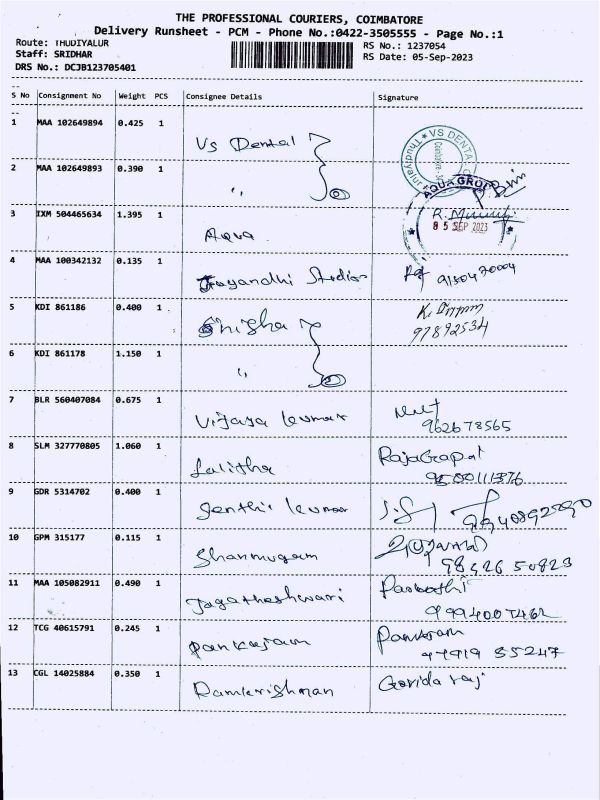 THE PROFESSIONAL COURIERS, COIMBATORE
Delivery Runsheet - PCM - Phone No.:0422-3505555 - Page No.:1
Route: THUDIYALUR
Staff: SRIDHAR
DRS No.: DCJB123705401
RS No.: 1237054
RS Date: 05-Sep-2023
S No Consignment No Weight PCS Consignee Details Signature
1 MAA 102649894 0.425 1 Vs Dental
VS DENTAL
2 MAA 102649893 0.390 1 "
AQUA GROUP
3 IXM 504465634 1.395 1 Aqua
05 SEP 2023
4 MAA 100342132 0.135 1 Jayandhi Studios
5 KDI 861186 0.400 1
97892534
6 KDI 861178 1.150 1 "
7 BLR 560407084 0.675 1 Vijaya kumar
962678565
8 SLM 327770805 1.060 1 Lalitha RajaGopal
9500111376
9 GDR 5314702 0.400 1 Senthil kumar
10 GPM 315177 0.115 1 Shanmugam
98426 50823
11 MAA 105082911 0.490 1 Jagatheshwari Parbathi
12 TCG 40615791 0.245 1 Pankajam Pankajam
13 CGL 14025884 0.350 1 Ramkrishnan Govida raj